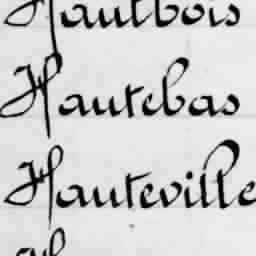 Hautbois
Hautebas
Hauteville